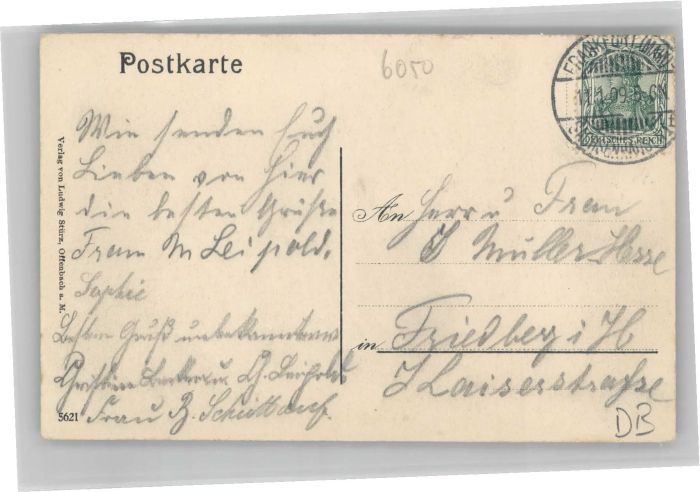 Postkarte
6050
FRANKFURT (MAIN)
1.09.
DEUTSCHES REICH
Wir senden Euch
Lieben von hier
die besten Grüße
Frau M Leipold.
Sophie
Besten Gruß unbekannterw
Frau B.
An Herr u Frau
J Müller Hesse
in Friedberg i H
Kaiserstraße
DB
Verlag von Ludwig Stürz, Offenbach a. M.
5621